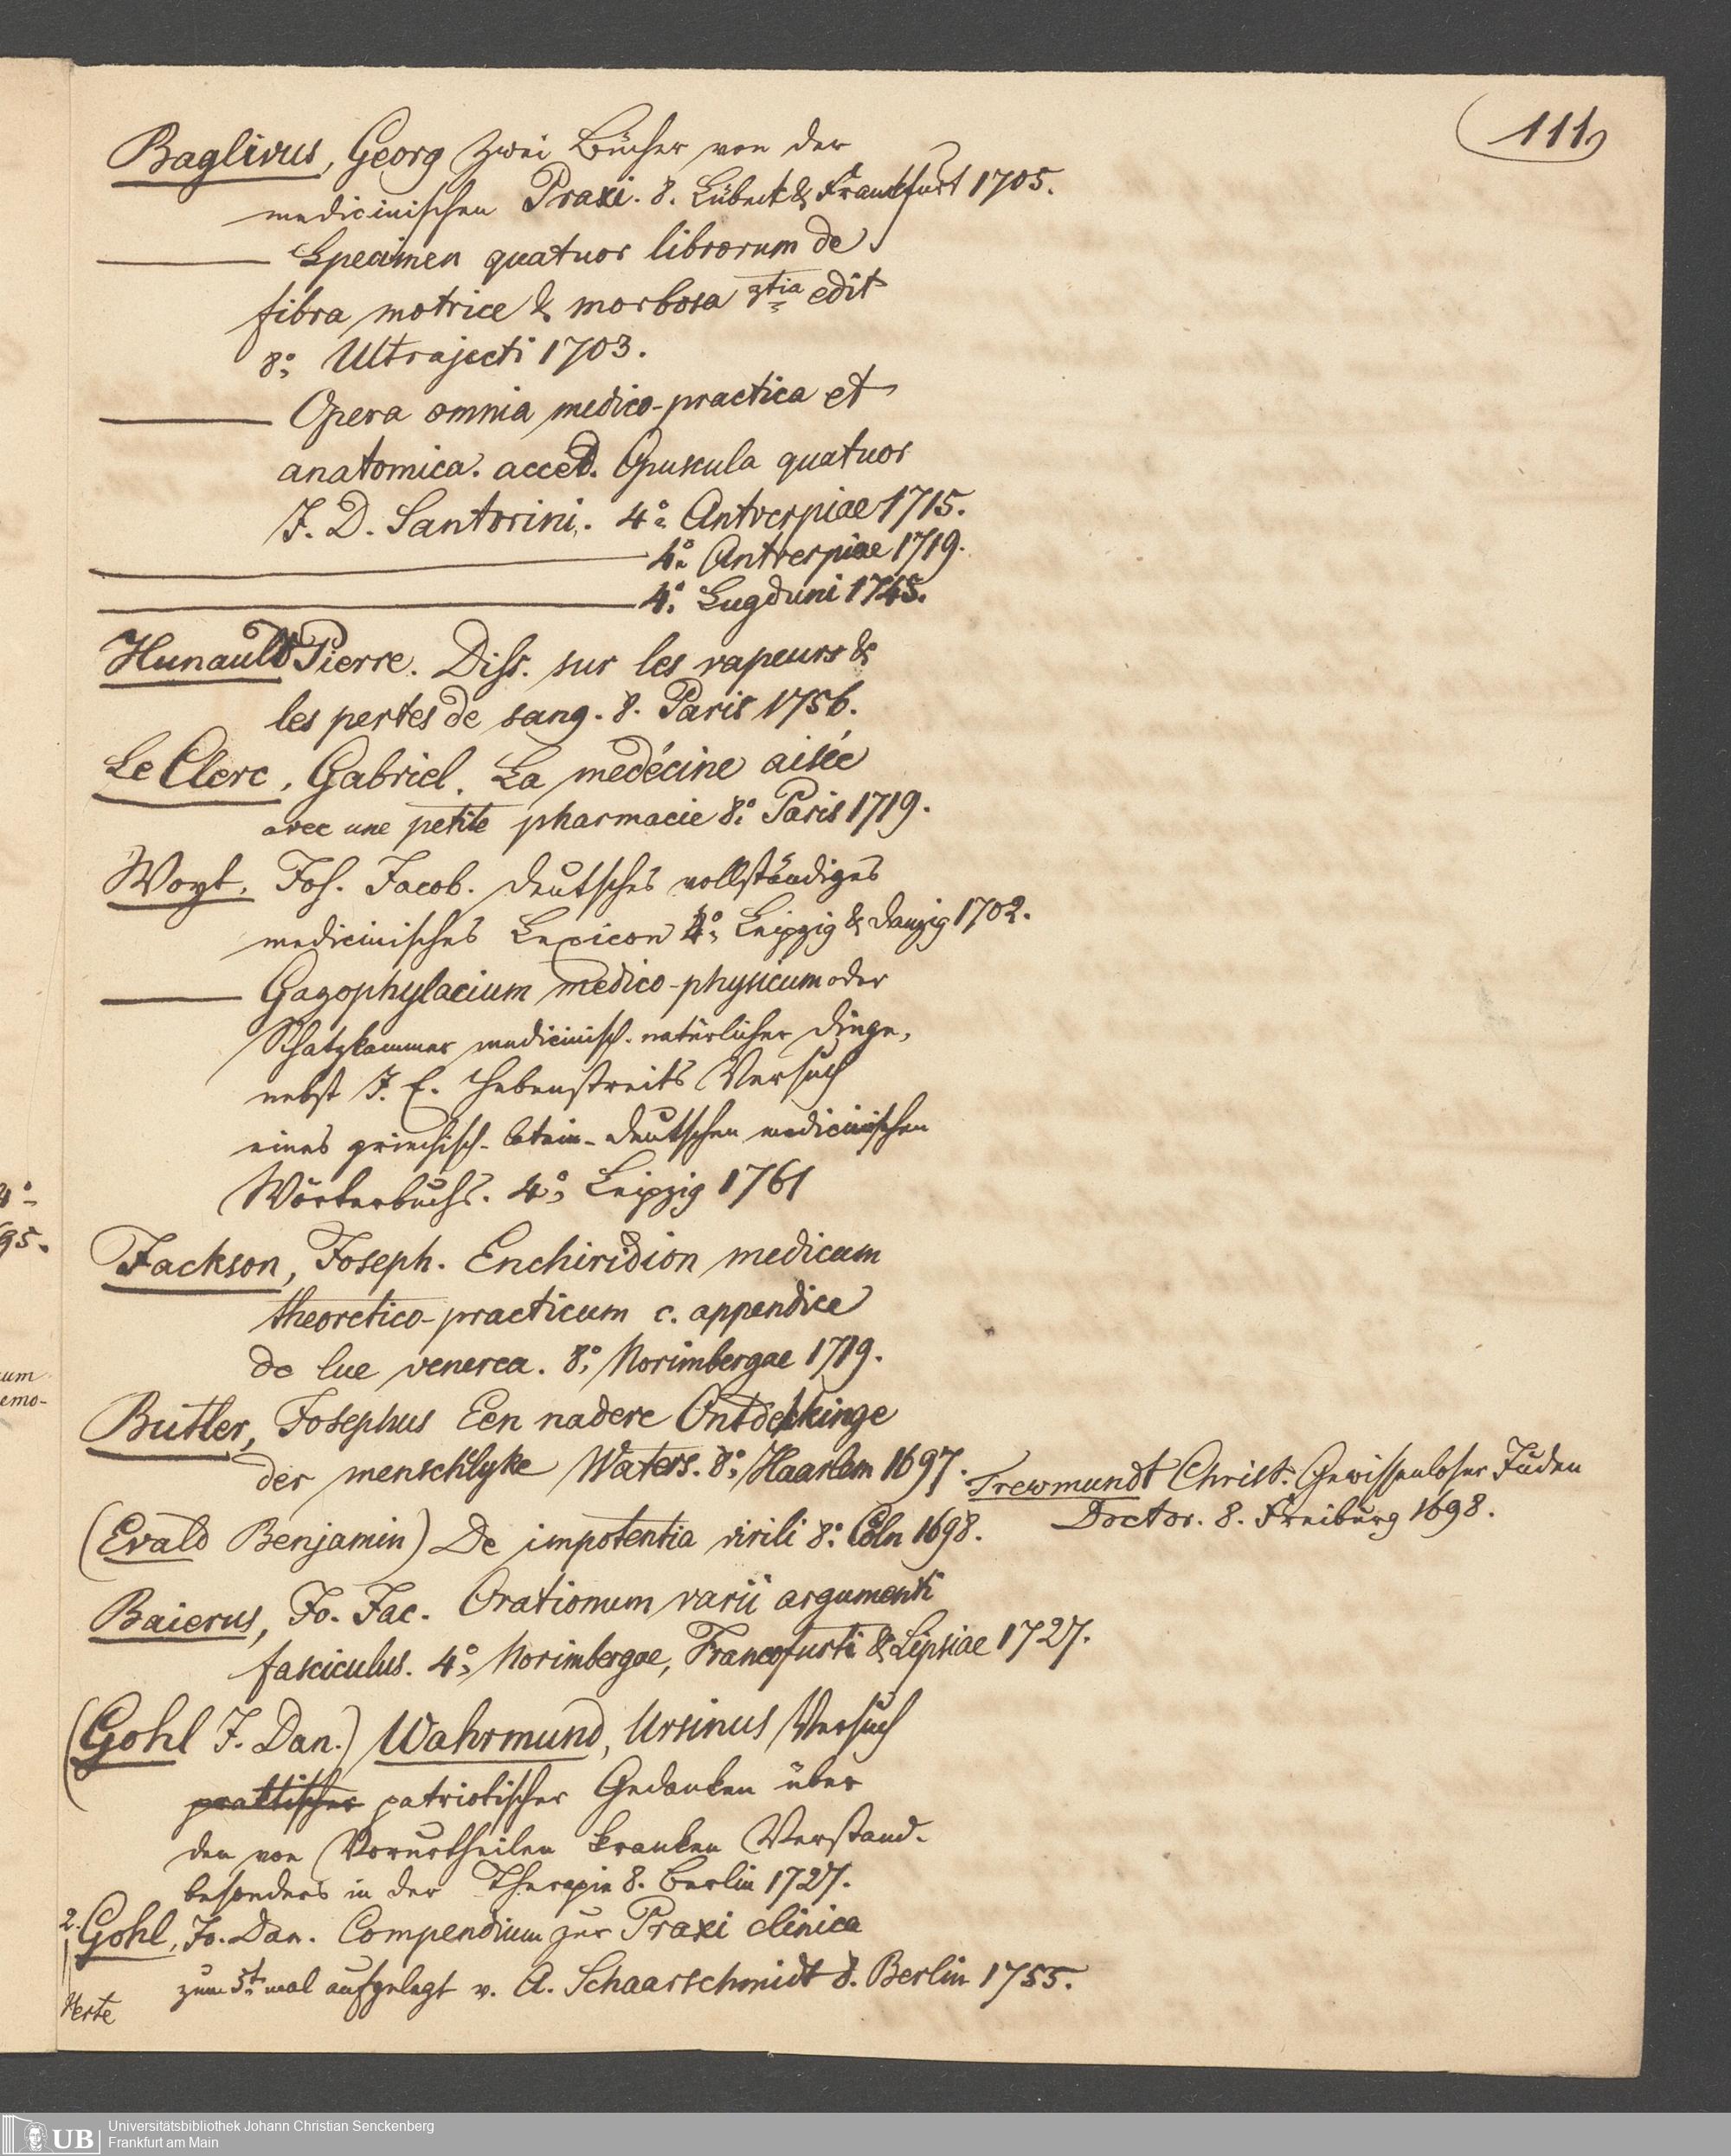 111
Baglivus, Georg zwei Bücher von der
medicinischen Praxi. 8. Lübeck & Frankfurt 1705.
——— Specimen quatuor librorum de
fibra motrice & morbosa 3tia edit
8o Ultrajecti 1703.
——— Opera omnia medico-practica et
anatomica. acced. Opuscula quatuor
J. D. Santorini. 4o Antverpiae 1715.
——— 4o Antverpiae 1719.
——— 4o Lugduni 1745.
Hunauld Pierre. Diss. sur les vapeurs &
les pertes de sang. 8. Paris 1756.
Le Clerc, Gabriel. La medécine aisée
avec une petite pharmacie 8o Paris 1719.
Woyt, Joh. Jacob. deutsches vollständiges
medicinisches Lexicon 4o Leipzig & Danzig 1702.
——— Gazophylacium medico-physicum oder
Schatzkammer medicinisch-natürlicher Dinge,
nebst J. E. Hebenstreits Versuch
eines griechisch-latein-deutschen medicinischen
Wörterbuchs. 4o Leipzig 1761
Jackson, Joseph. Enchiridion medicum
theoretico-practicum c. appendice
de lue venerea. 8o Norimbergae 1719.
Butler, Josephus Een nadere Ontdekkinge
der menschlyke Waters. 8o Haarlem 1697.
Trewmundt Christ. Gewissenloser Juden
Doctor. 8. Freiburg 1698.
(Evald Benjamin) De impotentia virili 8o Cöln 1698.
Baierus, Jo. Jac. Orationum varii argumenti
fasciculus. 4o Norimbergae, Francofurti & Lipsiae 1727.
(Gohl J. Dan.) Wahrmund, Ursinus Versuch
praktischer patriotischer Gedanken über
den von Vorurtheilen kranken Verstand.
besonders in der Therapie 8. Berlin 1727.
2. Gohl, Jo. Dan. Compendium zur Praxi clinica
zum 5t mal aufgelegt v. A. Schaarschmidt 8. Berlin 1755.
Verte
4o
95.
um
emo-
UB
Universitätsbibliothek Johann Christian Senckenberg
Frankfurt am Main